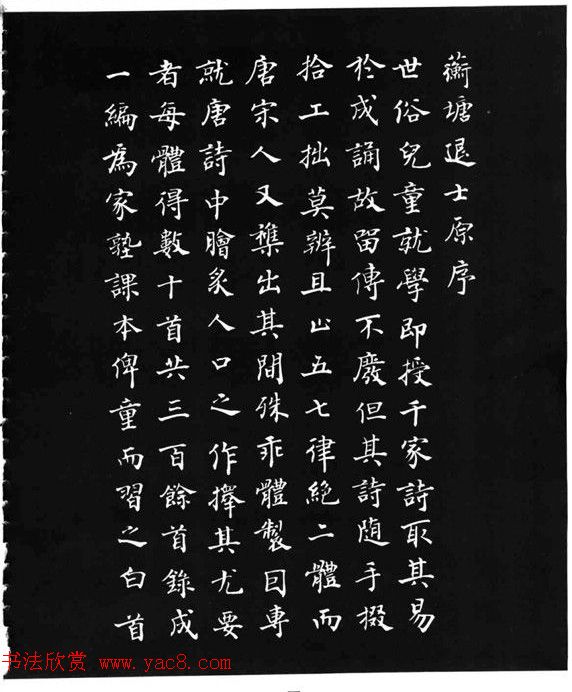 蘅塘退士原序
世俗兒童就學即授千家詩取其易
於成誦故留傳不廢但其詩隨手掇
拾工拙莫辨且止五七律絕二體而
唐宋人又雜出其間殊乖體製因專
就唐詩中膾炙人口之作擇其尤要
者每體得數十首共三百餘首錄成
一編為家塾課本俾童而習之白首
书法欣赏 www.yac8.com